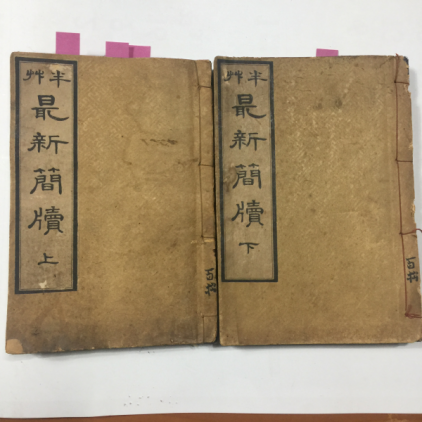 半艸
最新簡牘 上
半艸
最新簡牘 下